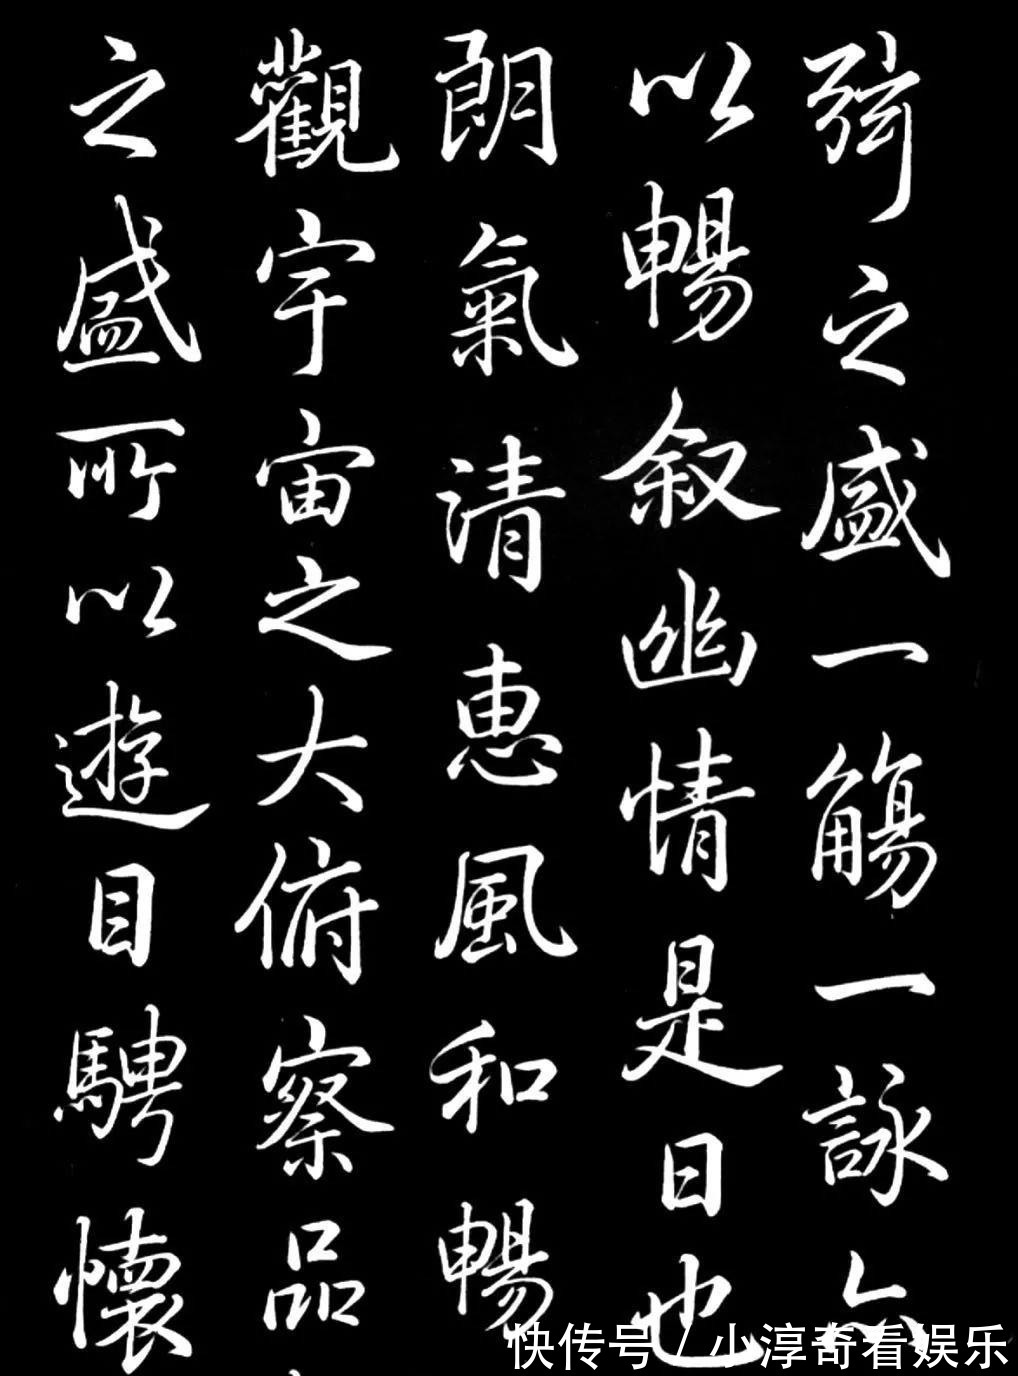 弦之盛一觴一詠亦
以暢叙幽情是日也
朗氣清惠風和暢
觀宇宙之大俯察品
之盛所以遊目騁懷
快传号 / 小淳奇看娱乐